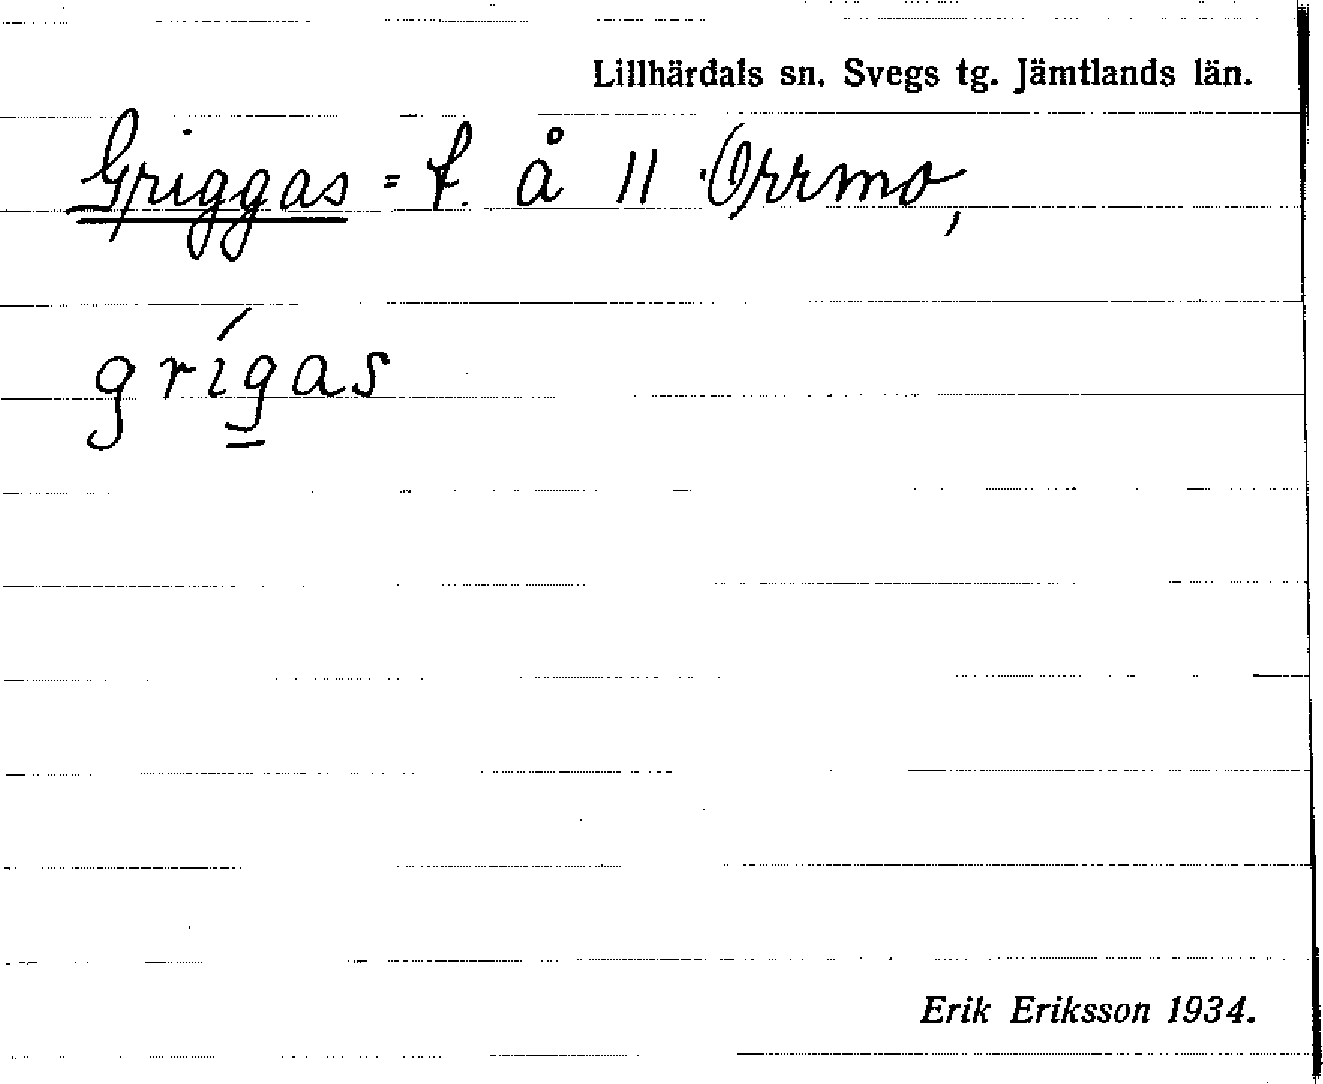 Lillhärdals sn. Svegs tg. Jämtlands län.
Griggas = f. å 11 Orrmo,
grígas
Erik Eriksson 1934.